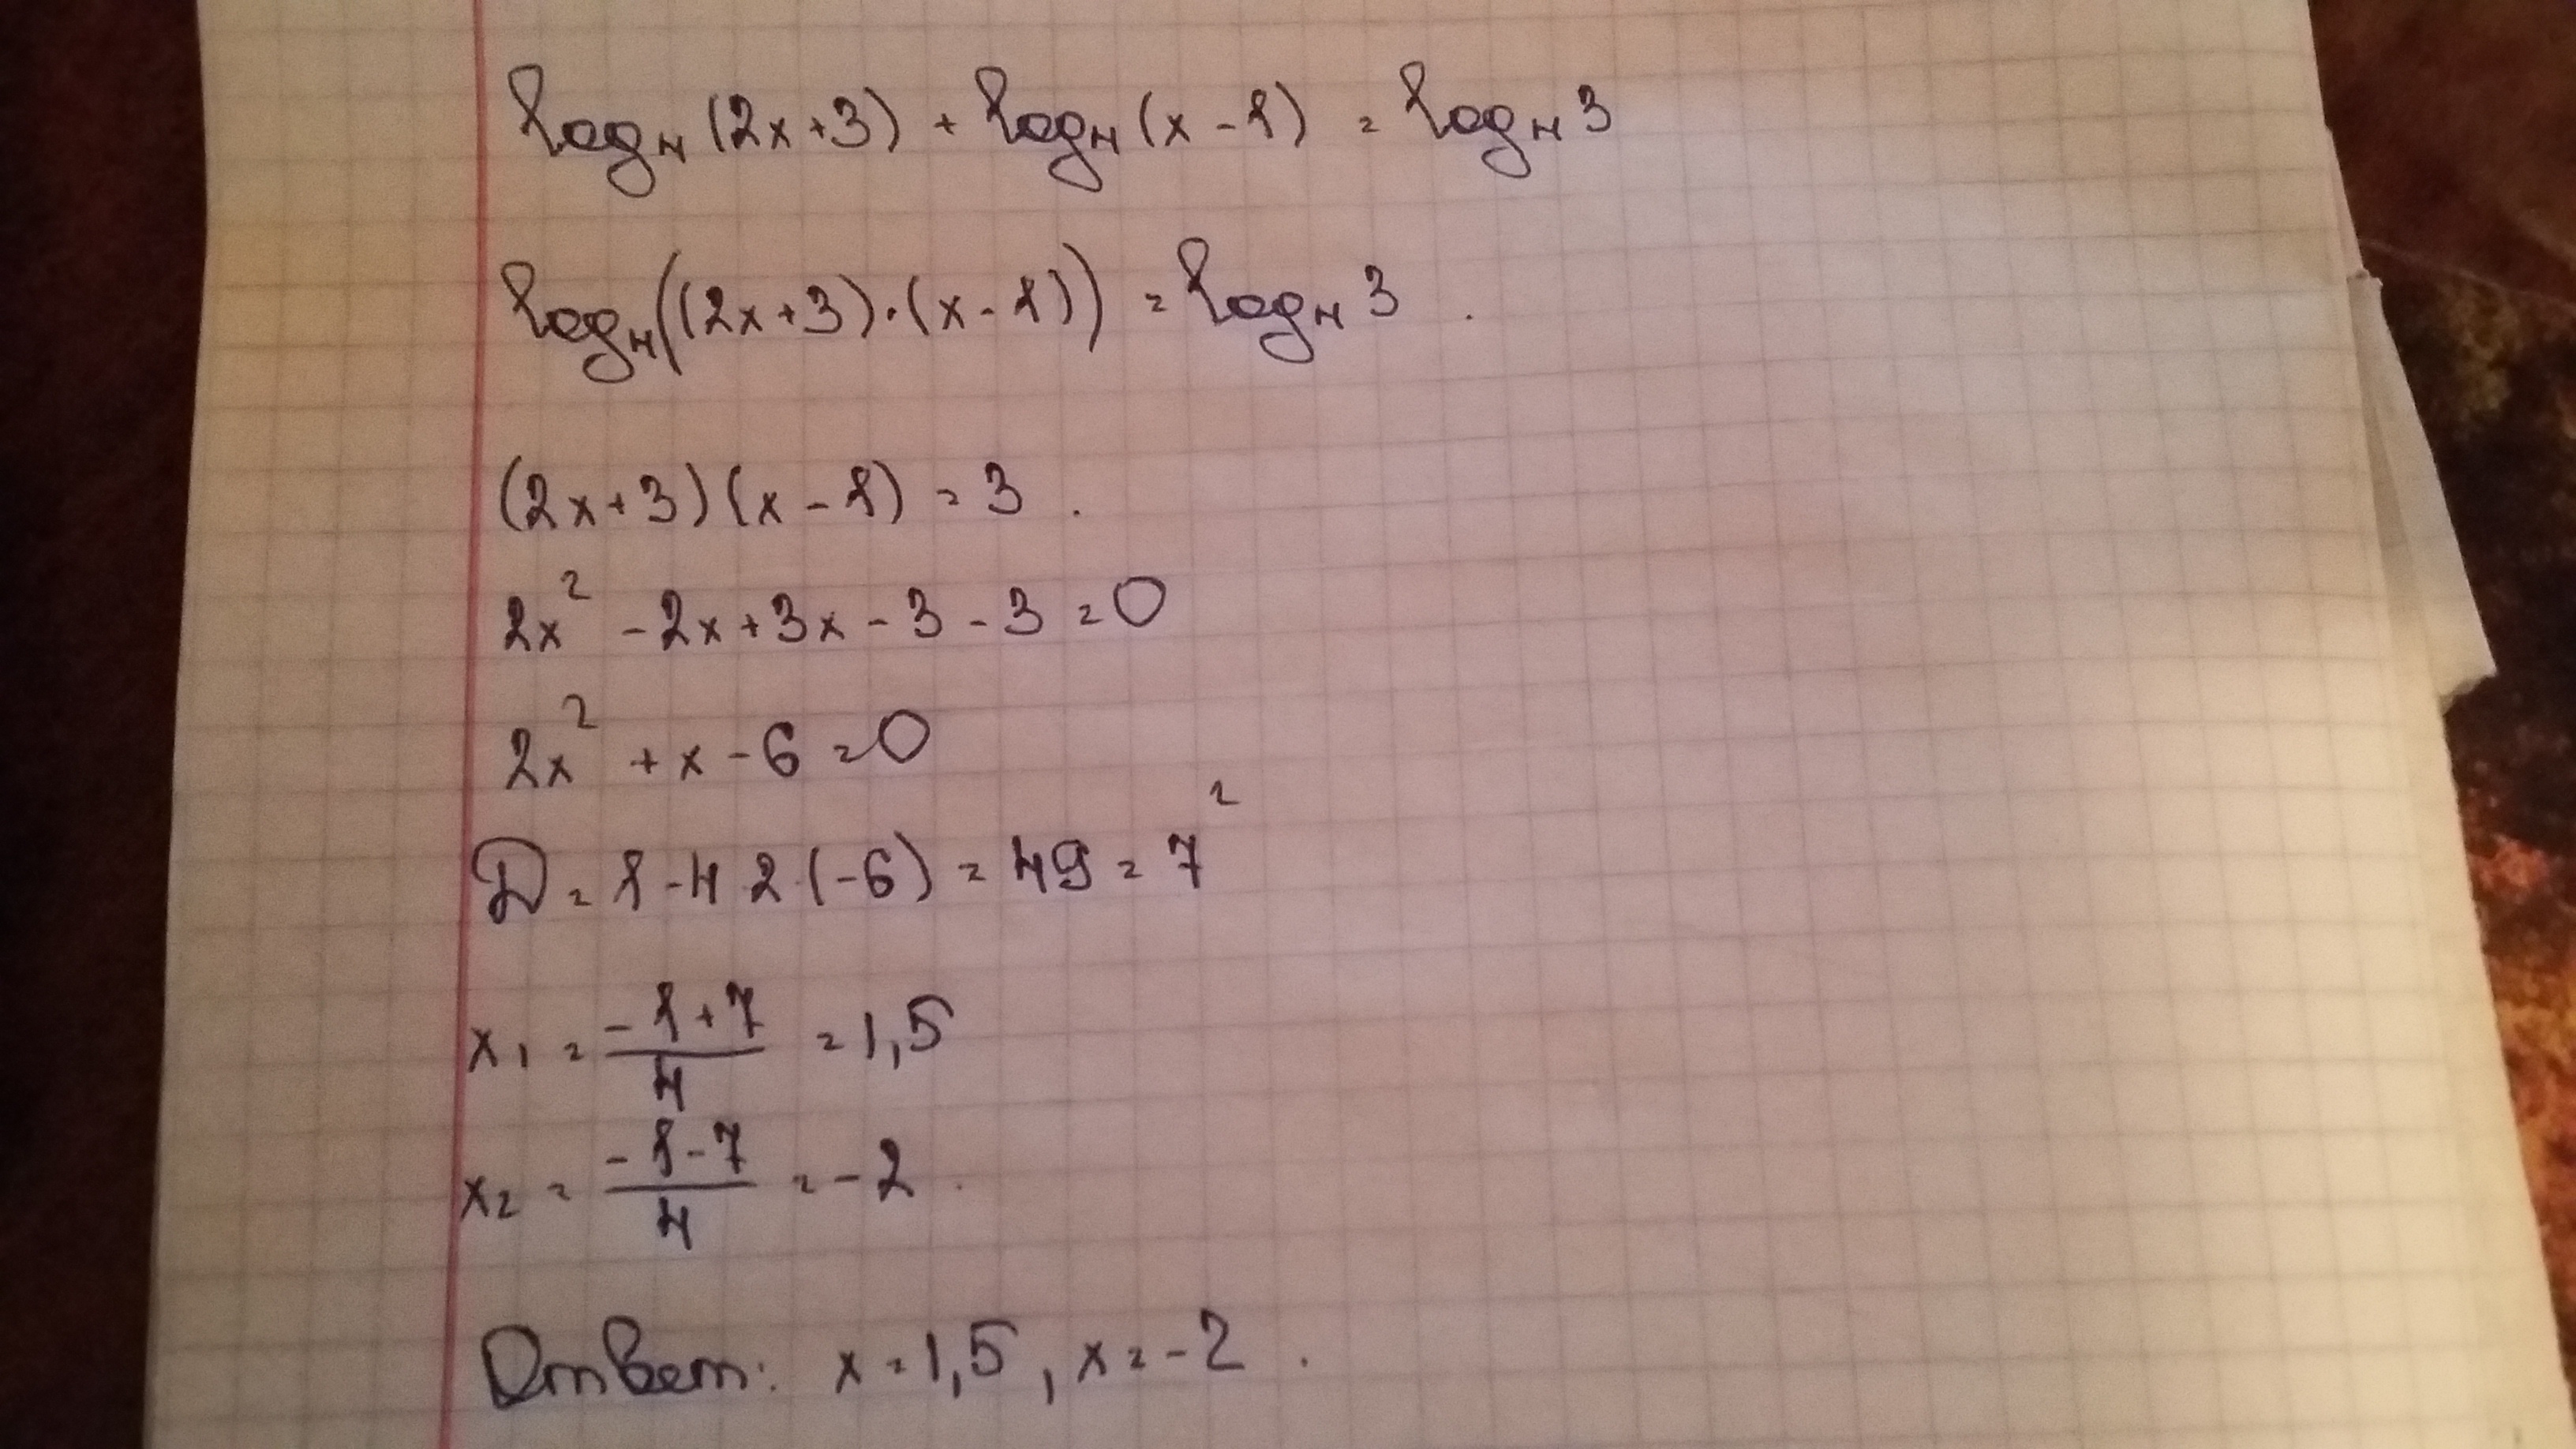 log₄(2x+3) + log₄(x-1) = log₄3
log₄((2x+3)·(x-1)) = log₄3.
(2x+3)(x-1) = 3.
2x² -2x+3x-3-3=0
2x² +x-6=0
D = 1-4 2(-6) = 49 = 7²
x₁ = (-1+7)/4 = 1,5
x₂ = (-1-7)/4 = -2.
Ответ: x=1,5, x=-2.